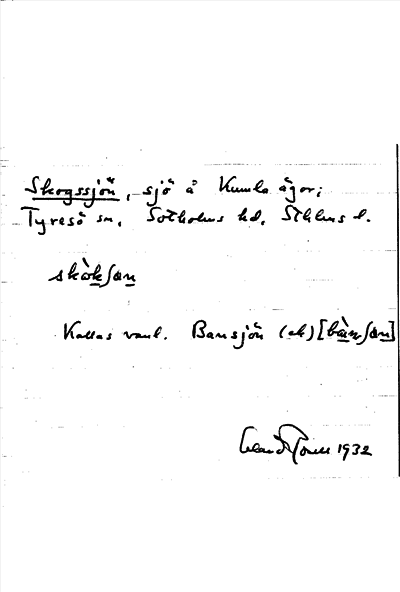 Skogssjön, sjö å Kumla ägor;
Tyresö sn, Sotholms hd, Sthlms l.
skòkʃøn
Kallas vanl. Barnsjön (ek) [bà̱nʃøn]
1932